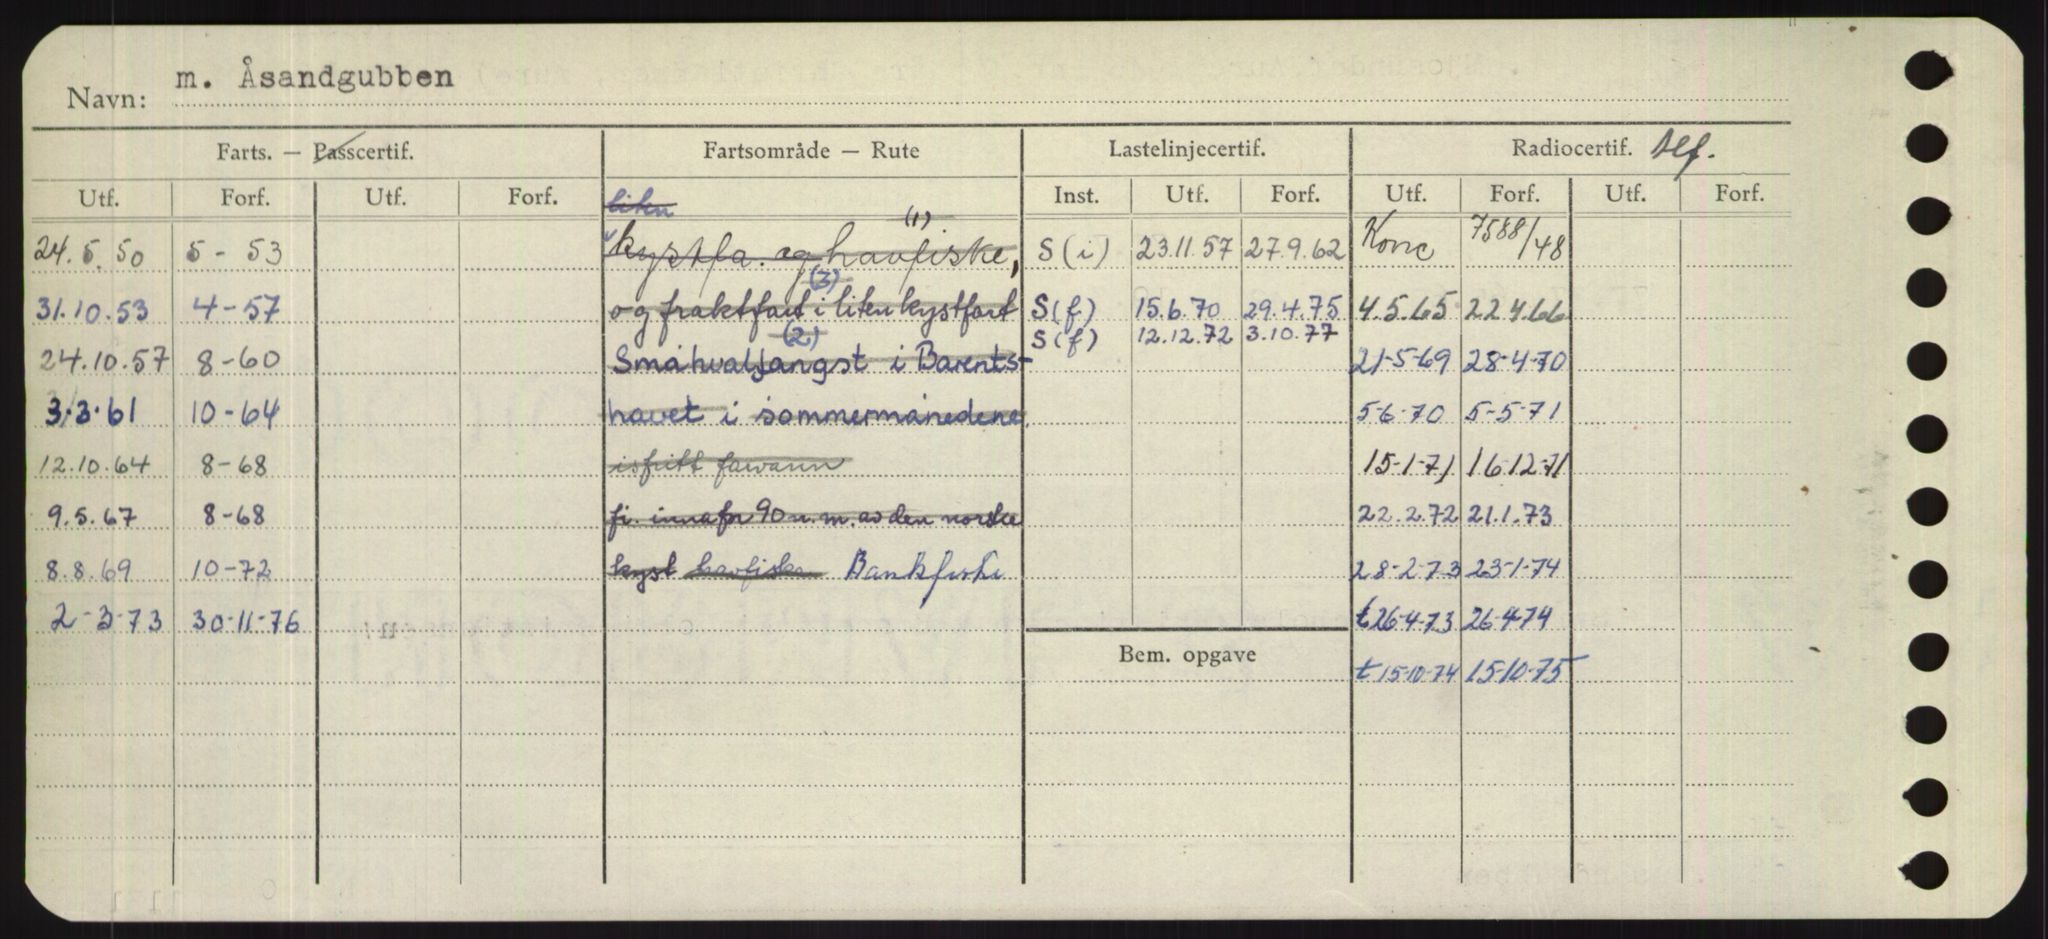 Navn: m. Åsandgubben
Farts. — Passcertif. Fartsområde — Rute Lastelinjecertif. Radiocertif. Tlf.
Utf. Forf. Utf. Forf. Inst. Utf. Forf. Utf. Forf. Utf. Forf.
liten
(1)
24.5.50 5-53 kystfa. og havfiske, S(i) 23.11.57 27.9.62 Konc 7588/48
(3)
31.10.53 4-57 og fraktfart i liten kystfart S(f) 15.6.70 29.4.75 4.5.65 22.4.66
(2) S(f) 12.12.72 3.10.77
24.10.57 8-60 Småhvalfangst i Barents- 21-5-69 28-4-70
3.3.61 10-64 havet i sommermånedene. 5-6-70 5-5-71
12.10.64 8-68 isfritt farvann 15-1-71 16-12-71
9.5.67 8-68 fi. innafor 90 n.m. av den norske 22.2.72 21.1.73
8.8.69 10-72 kyst havfiske Bankfiske 28-2-73 23-1-74
2-3-73 30-11-76 t 26-4-73 26-4-74
Bem. opgave t 15-10-74 15-10-75